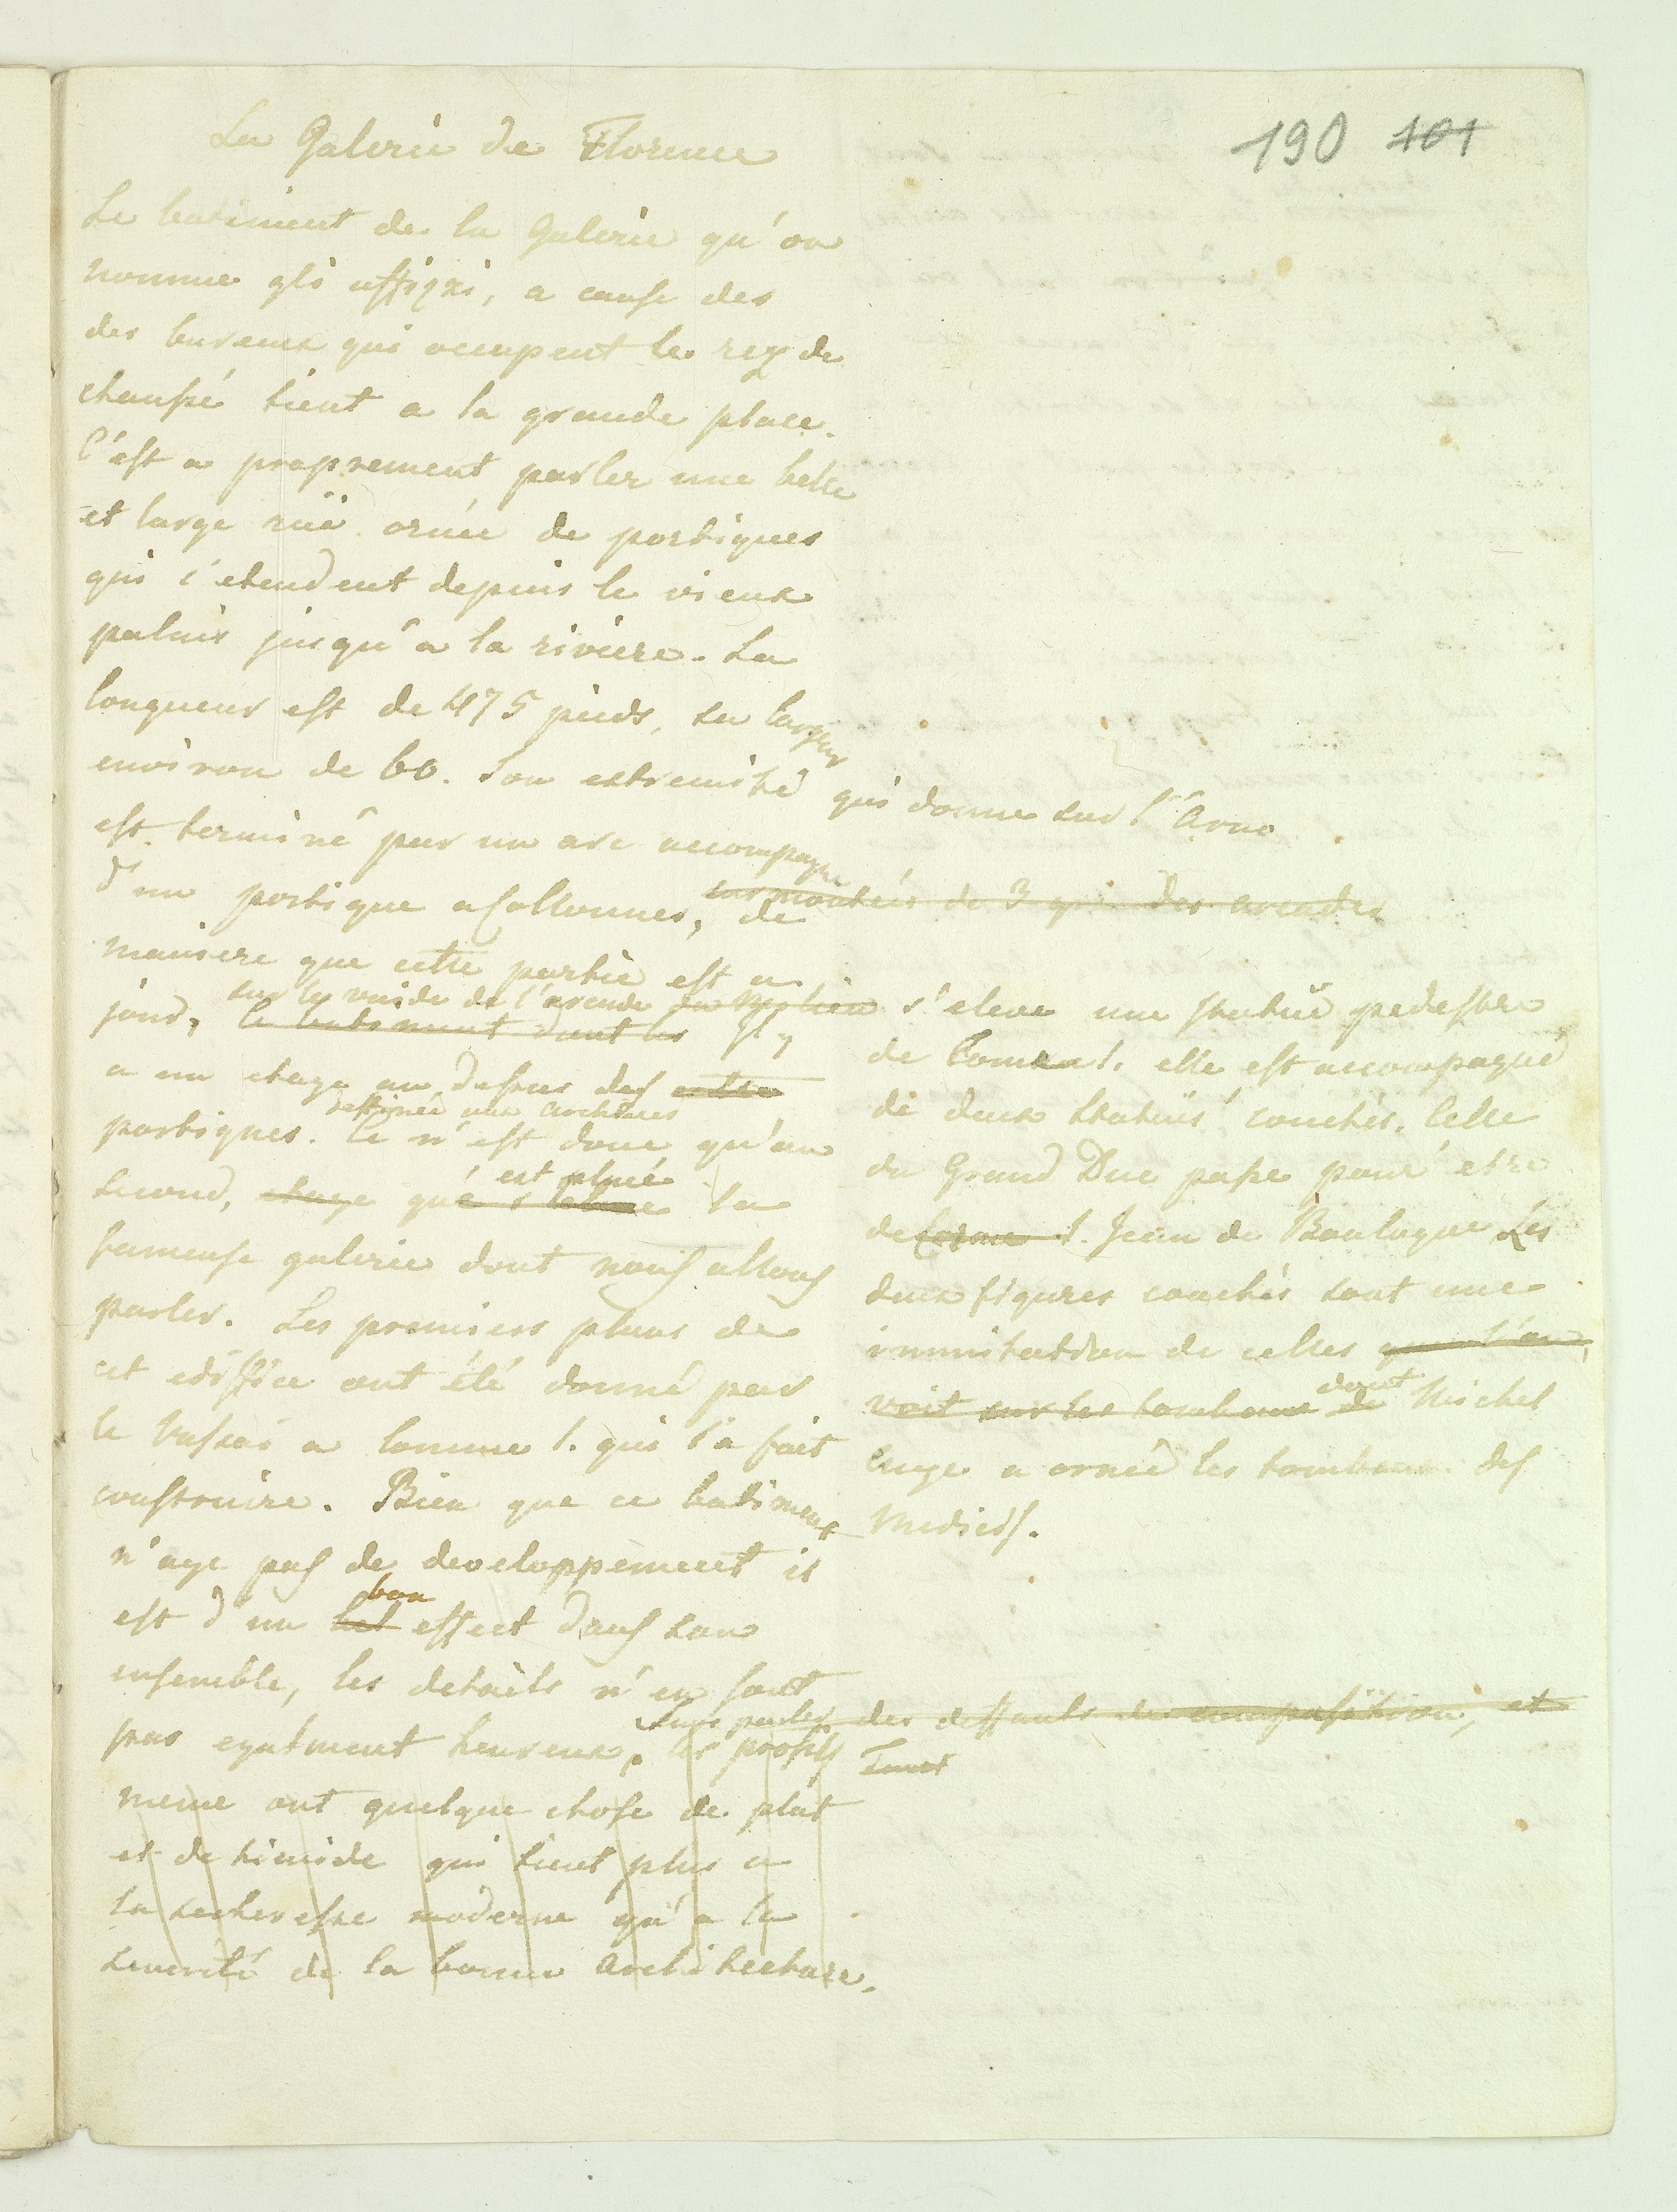 190 101
La Galerie de Florence
Le batiment de la Galerie qu'on
nomme gli uffizzi, a cause des
des bureaux qui occupent le rez de
chaussé tient a la grande place.
C'est a proprement parler une belle
et large ruë ornée de portiques
qui s'etendent depuis le vieux
palais jusqu'a la riviere. Sa
longueur est de 475 pieds, sa largeur
environ de 60. Son extremité qui donne sur l'Arno
est terminé par un arc accompagné
d'un portique a collonnes, de
surmontées de 3 grandes arcades
maniere que cette partie est a
jour, le batiment dont les Il y
a un etage au dessus des
portiques. Ce n'est donc qu'au
destinée aux archives
second, etage que s'eleve la
est placé
fameuse galerie dont nous allons
parler. Les premiers plans de
cet ediffice ont été donné par
le Vasari a Comme I. qui l'a fait
construire. Bien que ce batiment
n'aye pas de developpement il
est d'un bel effect dans son
bon
ensemble, les details n'en sont
pas egalement heureux, les profils
sans parler des deffauts de composition, et
tout
meme ont quelque chose de plat
et de timide qui tient plus a
la secheresse moderne qu'a la
severité de la bonne architecture.
sur le vuide de l'arcade du milieu s'eleve une statuë pedestre
de Come I. elle est accompagné
de deux statuës couchés. Celle
du Grand Duc passe pour etre
de Cosme I. Jean de Boulogne Les
deux figures couchés sont une
immitation de celles que l'on
voit sur les tombeaux de dont Michel
Ange a ornée les tombeaux des
Medicis.